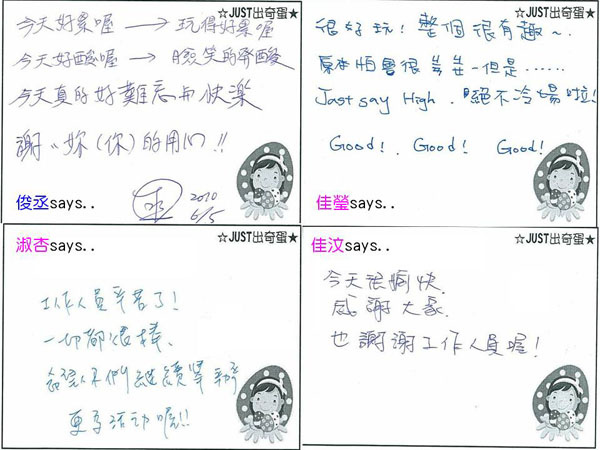 ☆JUST出奇蛋★
今天好累喔 → 玩得好累喔
今天好酸喔 → 臉笑的發酸
今天真的好難忘和快樂
謝〃妳(你)的用心!!
2010
6/5
俊丞says..
☆JUST出奇蛋★
很好玩!整個很有趣~.
原本怕會很ㄍㄧㄥ-但是......
Just say High. 絕不冷場啦!
Good!. Good! Good!
佳瑩says..
☆JUST出奇蛋★
淑杏says..
工作人員辛苦了!
一切都很棒.
希望你們繼續舉辦
更多活動喔!!
☆JUST出奇蛋★
佳汶says..
今天很愉快.
感謝大家.
也謝謝工作人員喔!